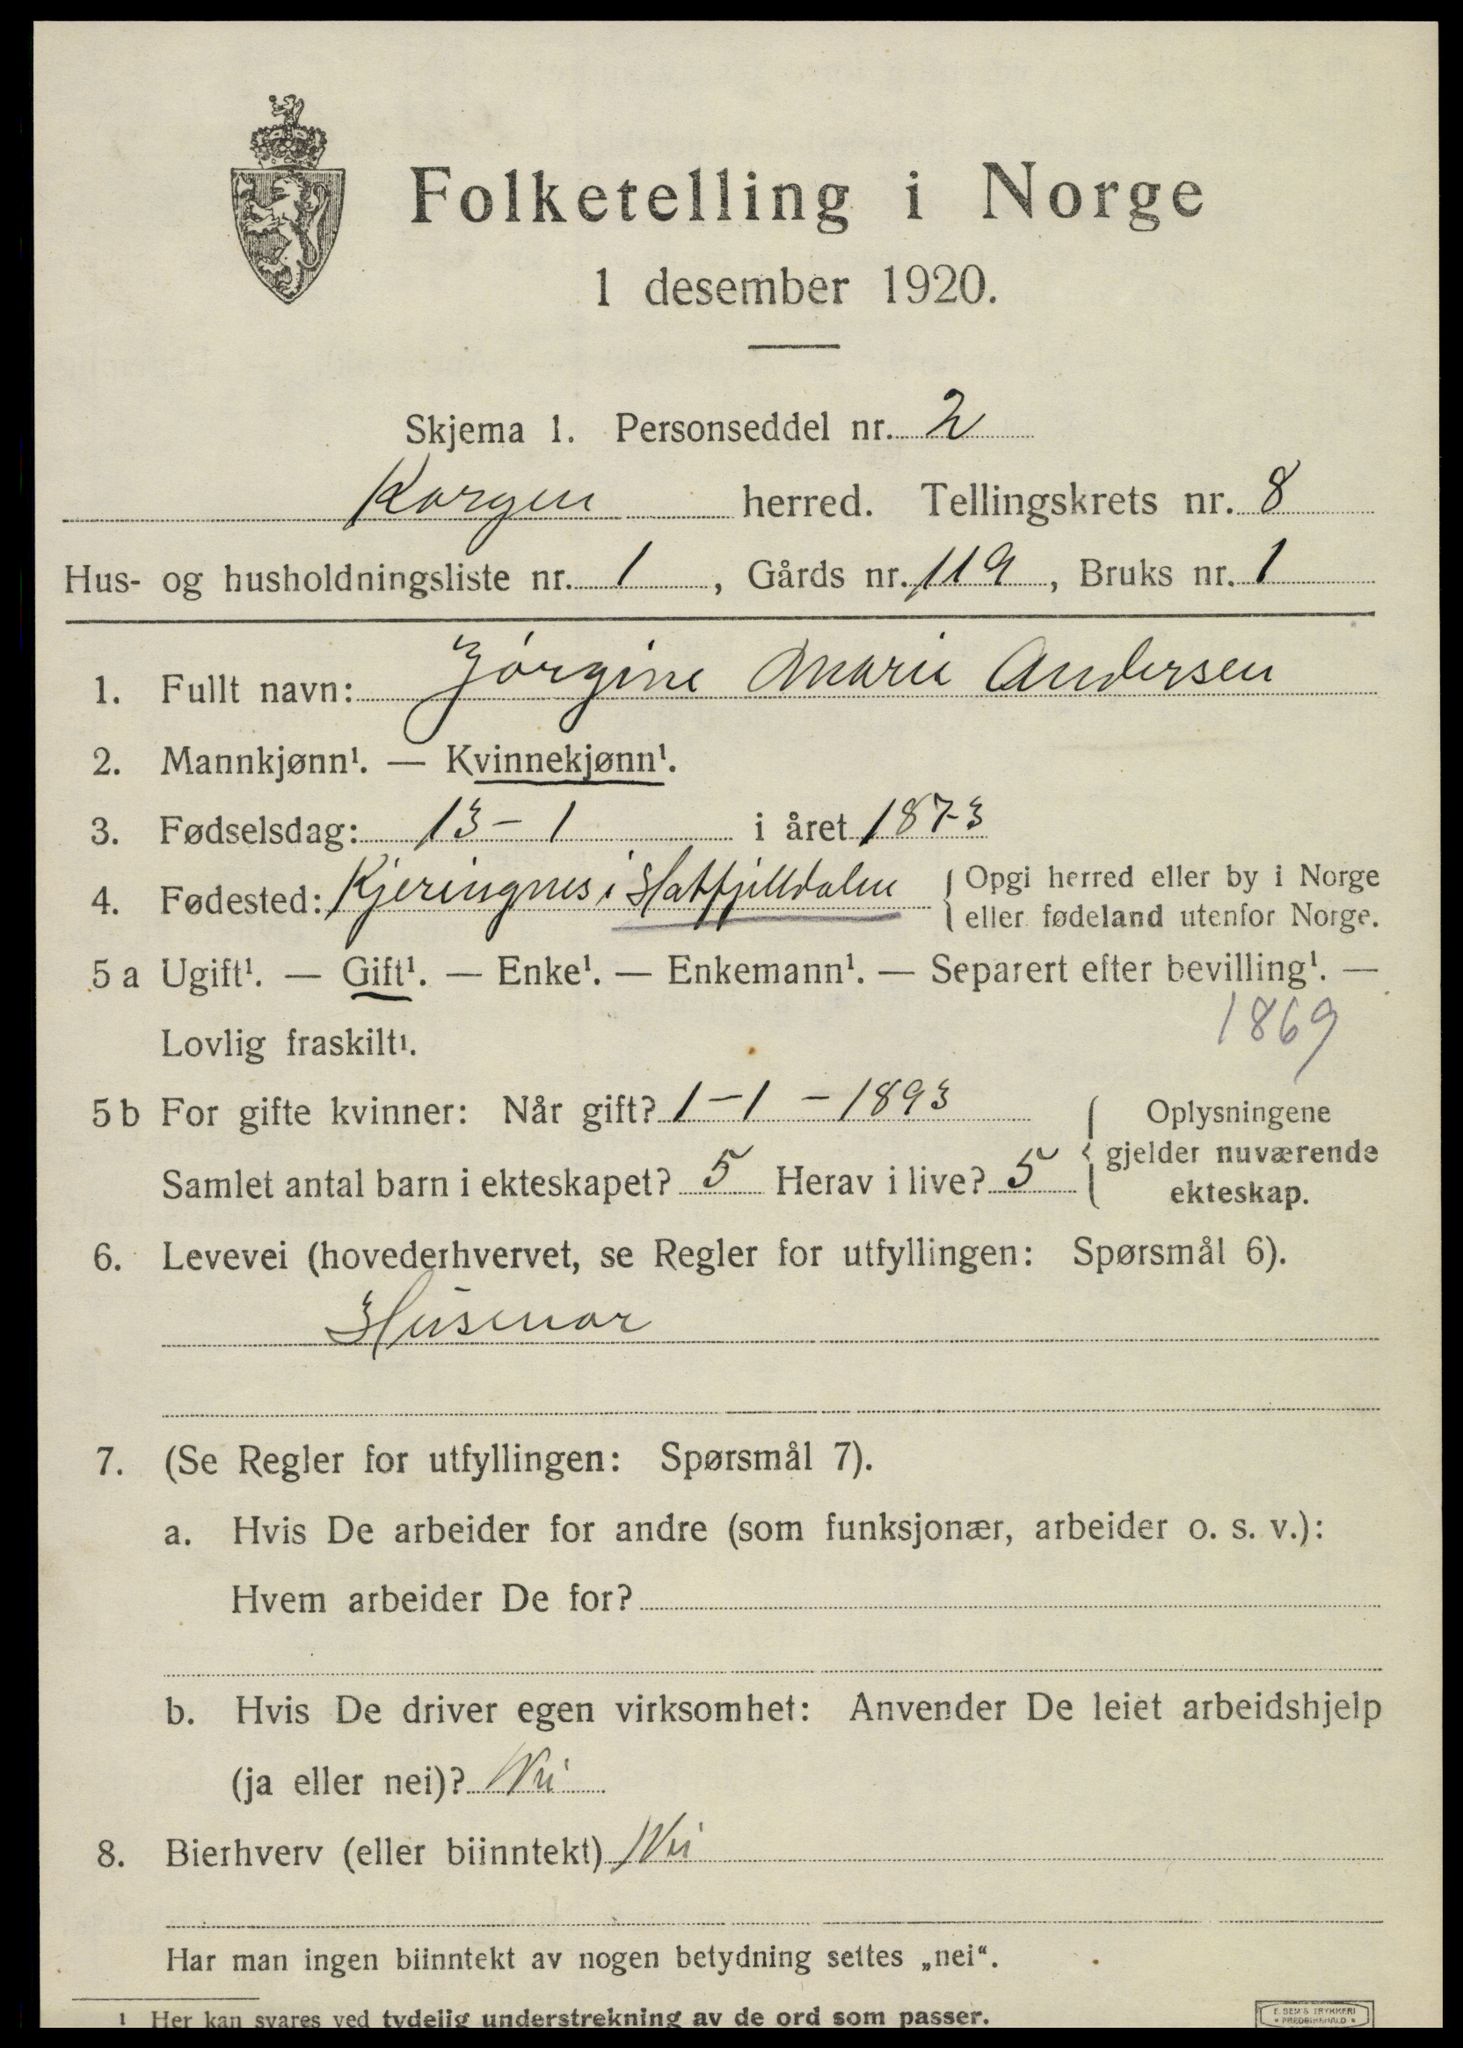 Folketelling i Norge
1 desember 1920.
Skjema 1. Personseddel nr. 2
Korgen herred. Tellingskrets nr. 8
Hus- og husholdningsliste nr. 1, Gårds nr. 119, Bruks nr. 1
1. Fullt navn: Jørgine Marie Andersen
2. Mannkjønn¹. — Kvinnekjønn¹.
3. Fødselsdag: 13-1 i året 1873
4. Fødested: Kjeringnes i Hatfjelldalen { Opgi herred eller by i Norge
eller fødeland utenfor Norge.
5 a Ugift¹. — Gift¹. — Enke¹. — Enkemann¹. — Separert efter bevilling¹. —
Lovlig fraskilt¹.
1869
5 b For gifte kvinner: Når gift? 1-1-1893
Samlet antal barn i ekteskapet? 5 Herav i live? 5
{ Oplysningene
gjelder nuværende
ekteskap.
6. Levevei (hovederhvervet, se Regler for utfyllingen: Spørsmål 6).
Husmor
7. (Se Regler for utfyllingen: Spørsmål 7).
a. Hvis De arbeider for andre (som funksjonær, arbeider o. s. v.):
Hvem arbeider De for?
b. Hvis De driver egen virksomhet: Anvender De leiet arbeidshjelp
(ja eller nei)? Nei
8. Bierhverv (eller biinntekt) Nei
Har man ingen biinntekt av nogen betydning settes „nei“.
¹ Her kan svares ved tydelig understrekning av de ord som passer.
E. SEM'S TRYKKERI
FREDRIKSHALD